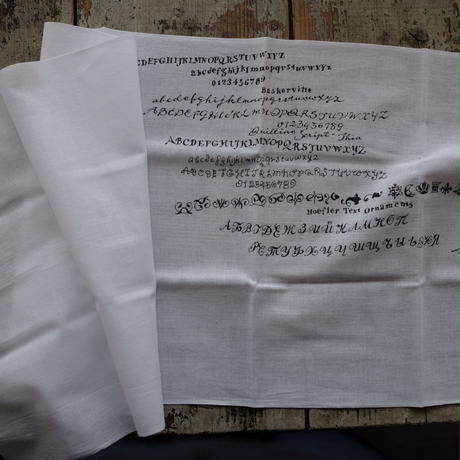 BCDEFGHIJKLMNOPQRSTUVWXYZ
abcdefghijklmnopqrstuvwxyz
0123456789
Baskerville
abcdefghijklmnopqrstuvwxyz
ABCDEFGHIJKLMNOPQRSTUVWXYZ
0123456789
Quilline Script-Thin
ABCDEFGHIJKLMNOPQRSTUVWXYZ
abcdefghijklmnopqrstuvwxyz
ABCDEFGHIJKLMNOPQRSTUVWXYZ
0123456789
Hoefler Text Ornaments
АБВГДЕЖЗИЙКЛМНОП
РСТУФХЦЧШЩЪЫЬЭЯ